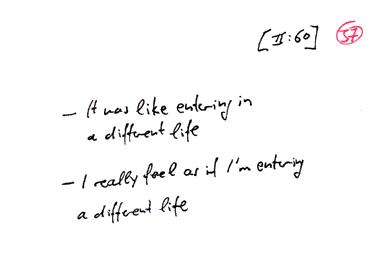 [II:60] 57
– It was like entering in
a different life
– I really feel as if I'm entering
a different life